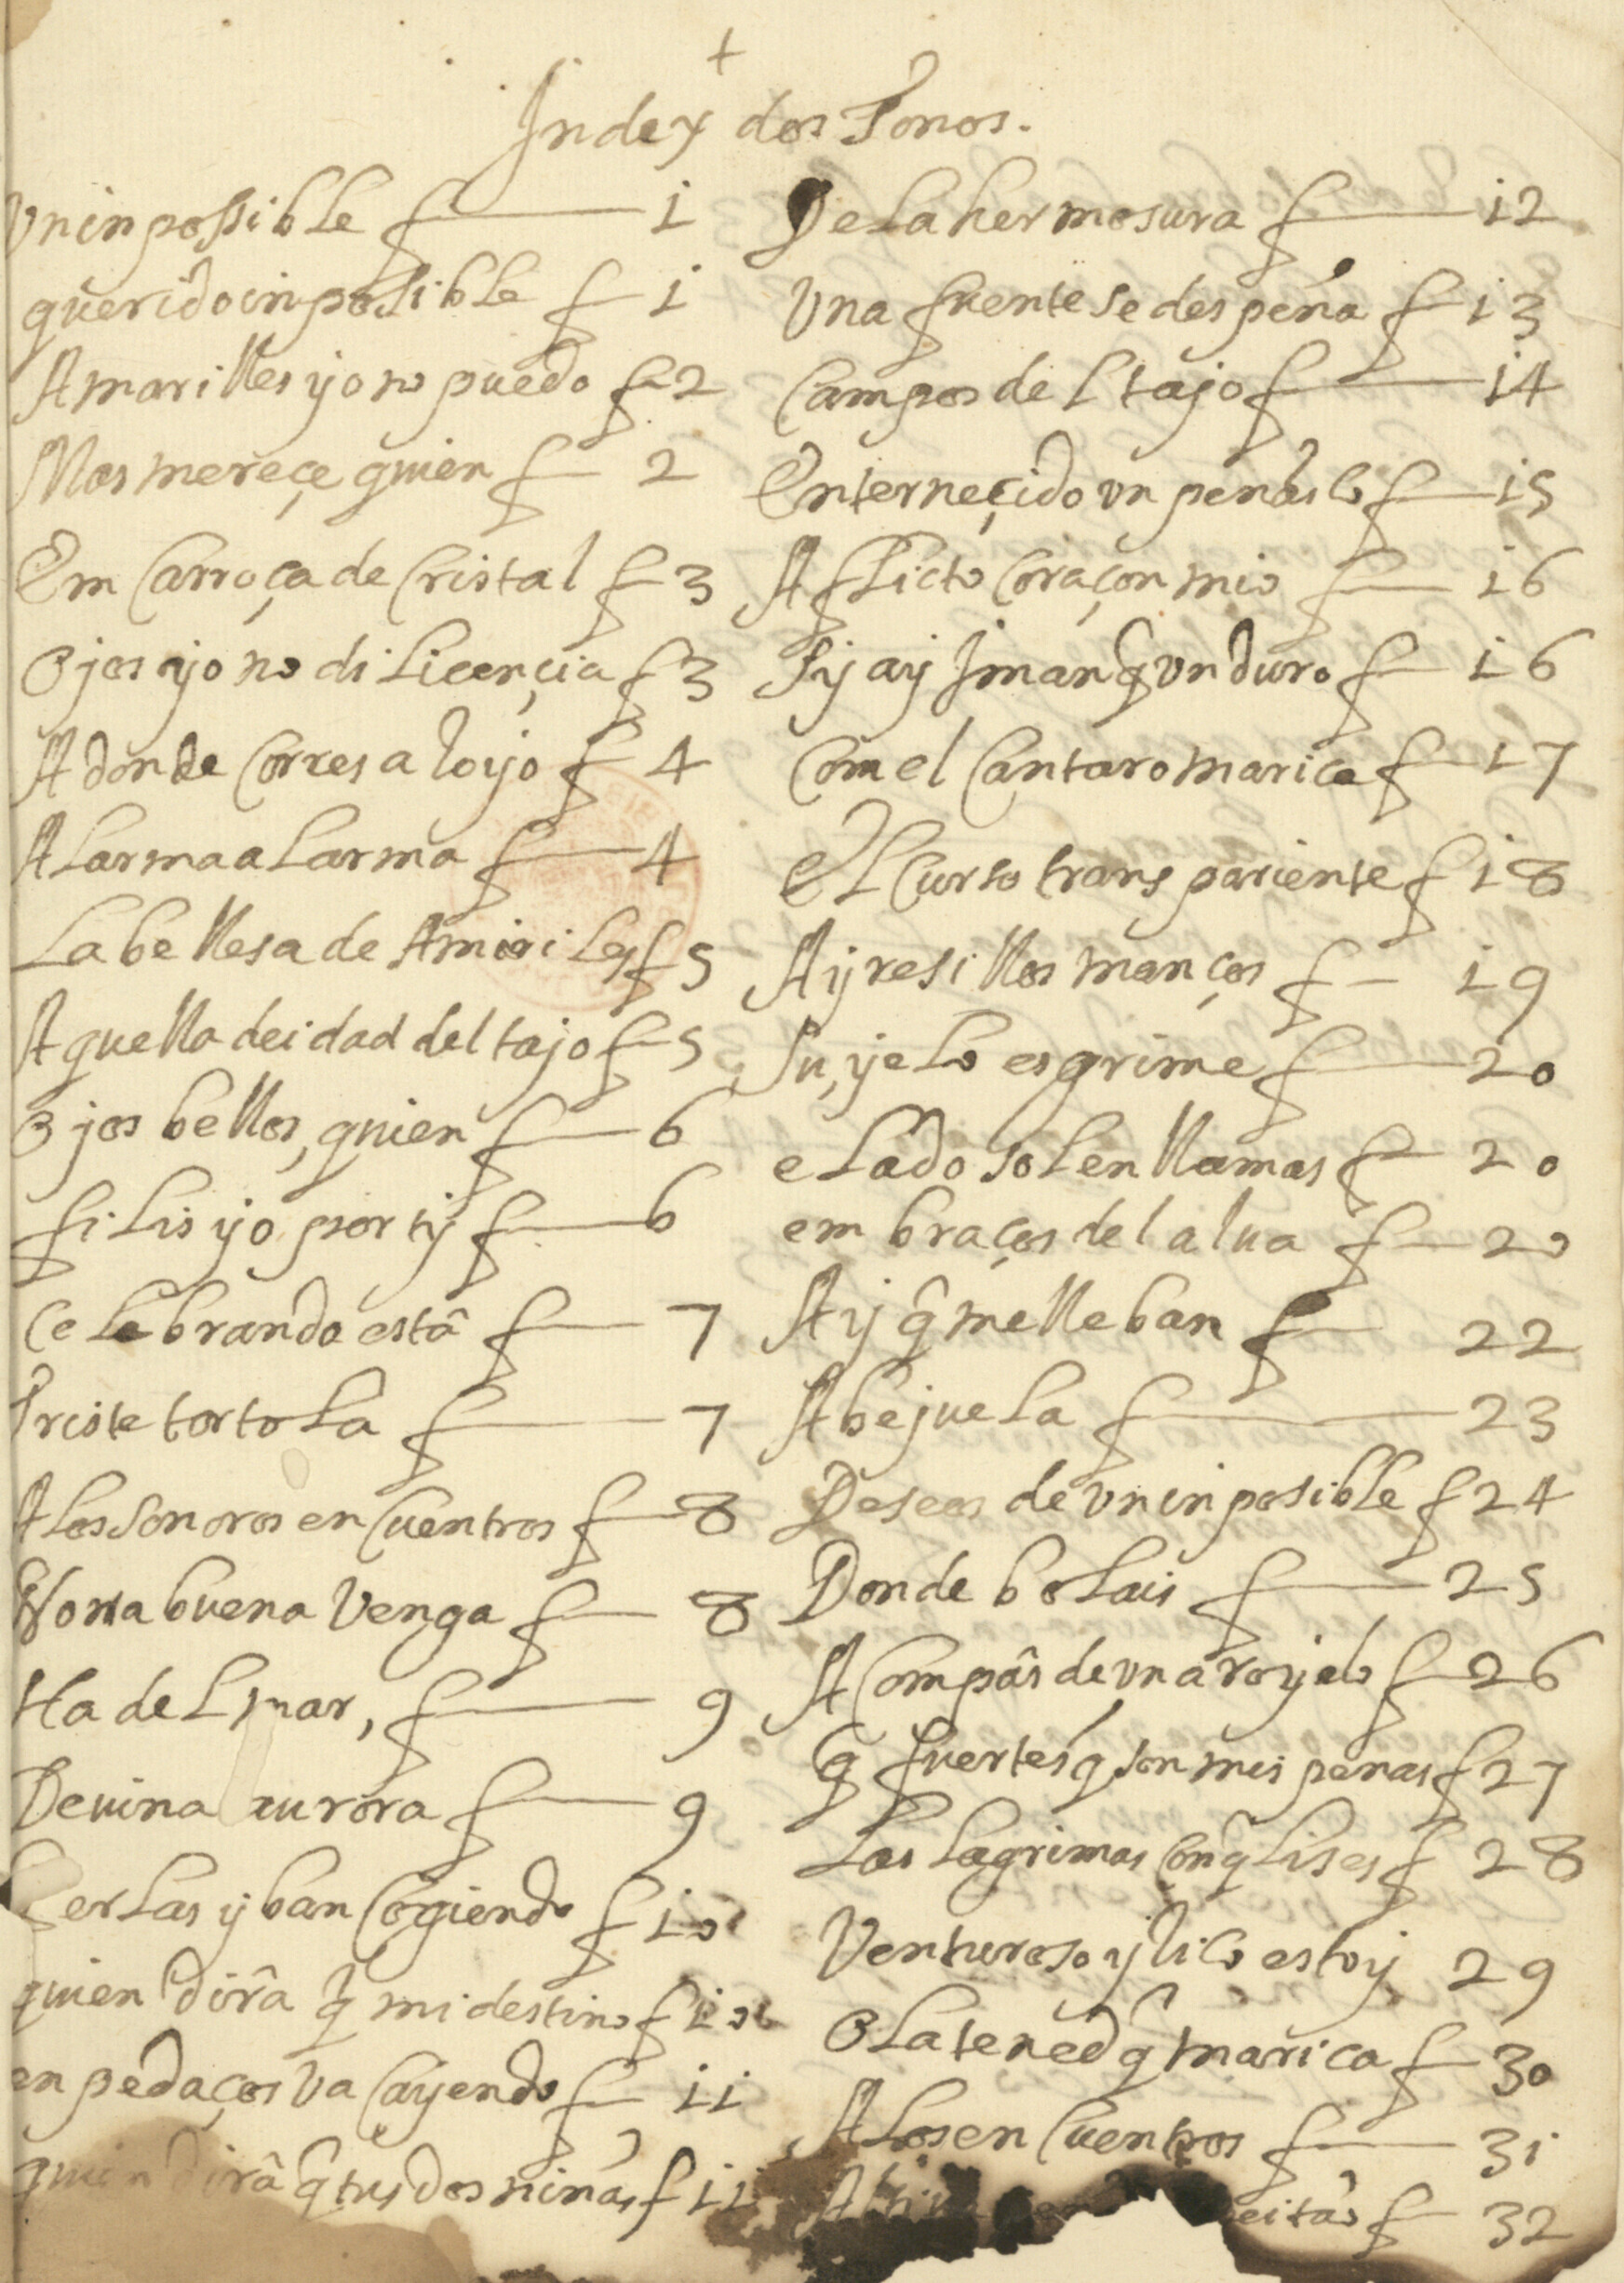 +
Index dos Tonos.
Vn inpossible f 1
querido inposible f 1
Amarilles yo no puedo f 2
Mas mereçe quien f 2
Em Carroça de Cristal f 3
Ojos yo no di Licençia f 3
Adonde Corres aloyo f 4
ALarma aLarma f 4
La bellesa de Amariles f 5
Aquella deidad del tajo f 5
Ojos bellos, quien f 6
fiLis yo por ty f 6
CeLebrando estâ f 7
Triste tortoLa f 7
ALos Sonoros enCuentros f 8
Norabuena Venga f 8
Ha deL mar, f 9
Deuina aurora f 9
PerLas yban Cogiendo f 10
quien dirâ q̃ mi destino f 10
en pedaços Va Cayendo f 11
quien dirâ q̃ tus dos ninas f 11
De La hermosura f 12
Vna fuente se despeña f 13
Campos deL tajo f 14
Enterneçido vn penasco f 15
AfLicto Coraçon mio f 16
Sy ay Jman q̃ vn duro f 16
Com el Cantaro marica f 17
EL Curso transpariente f 18
Ayresillos manços f 19
Su, yeLo esgrime f 20
eLado soL en llamas f 20
em braços del alua f 20
Ay q̃ me lleban f 22
AbejueLa f 23
Deseos de vn inposibLe f 24
Donde boLais f 25
A Compâs de vn aroyelo f 26
q̃ fuertes q̃ son mis penas f 27
Las Lagrimas Con q̃ Lises f 28
Venturoso y hilo estoy 29
OLa tened q̃ marica f 30
ALos enCuentros f 31
f 32